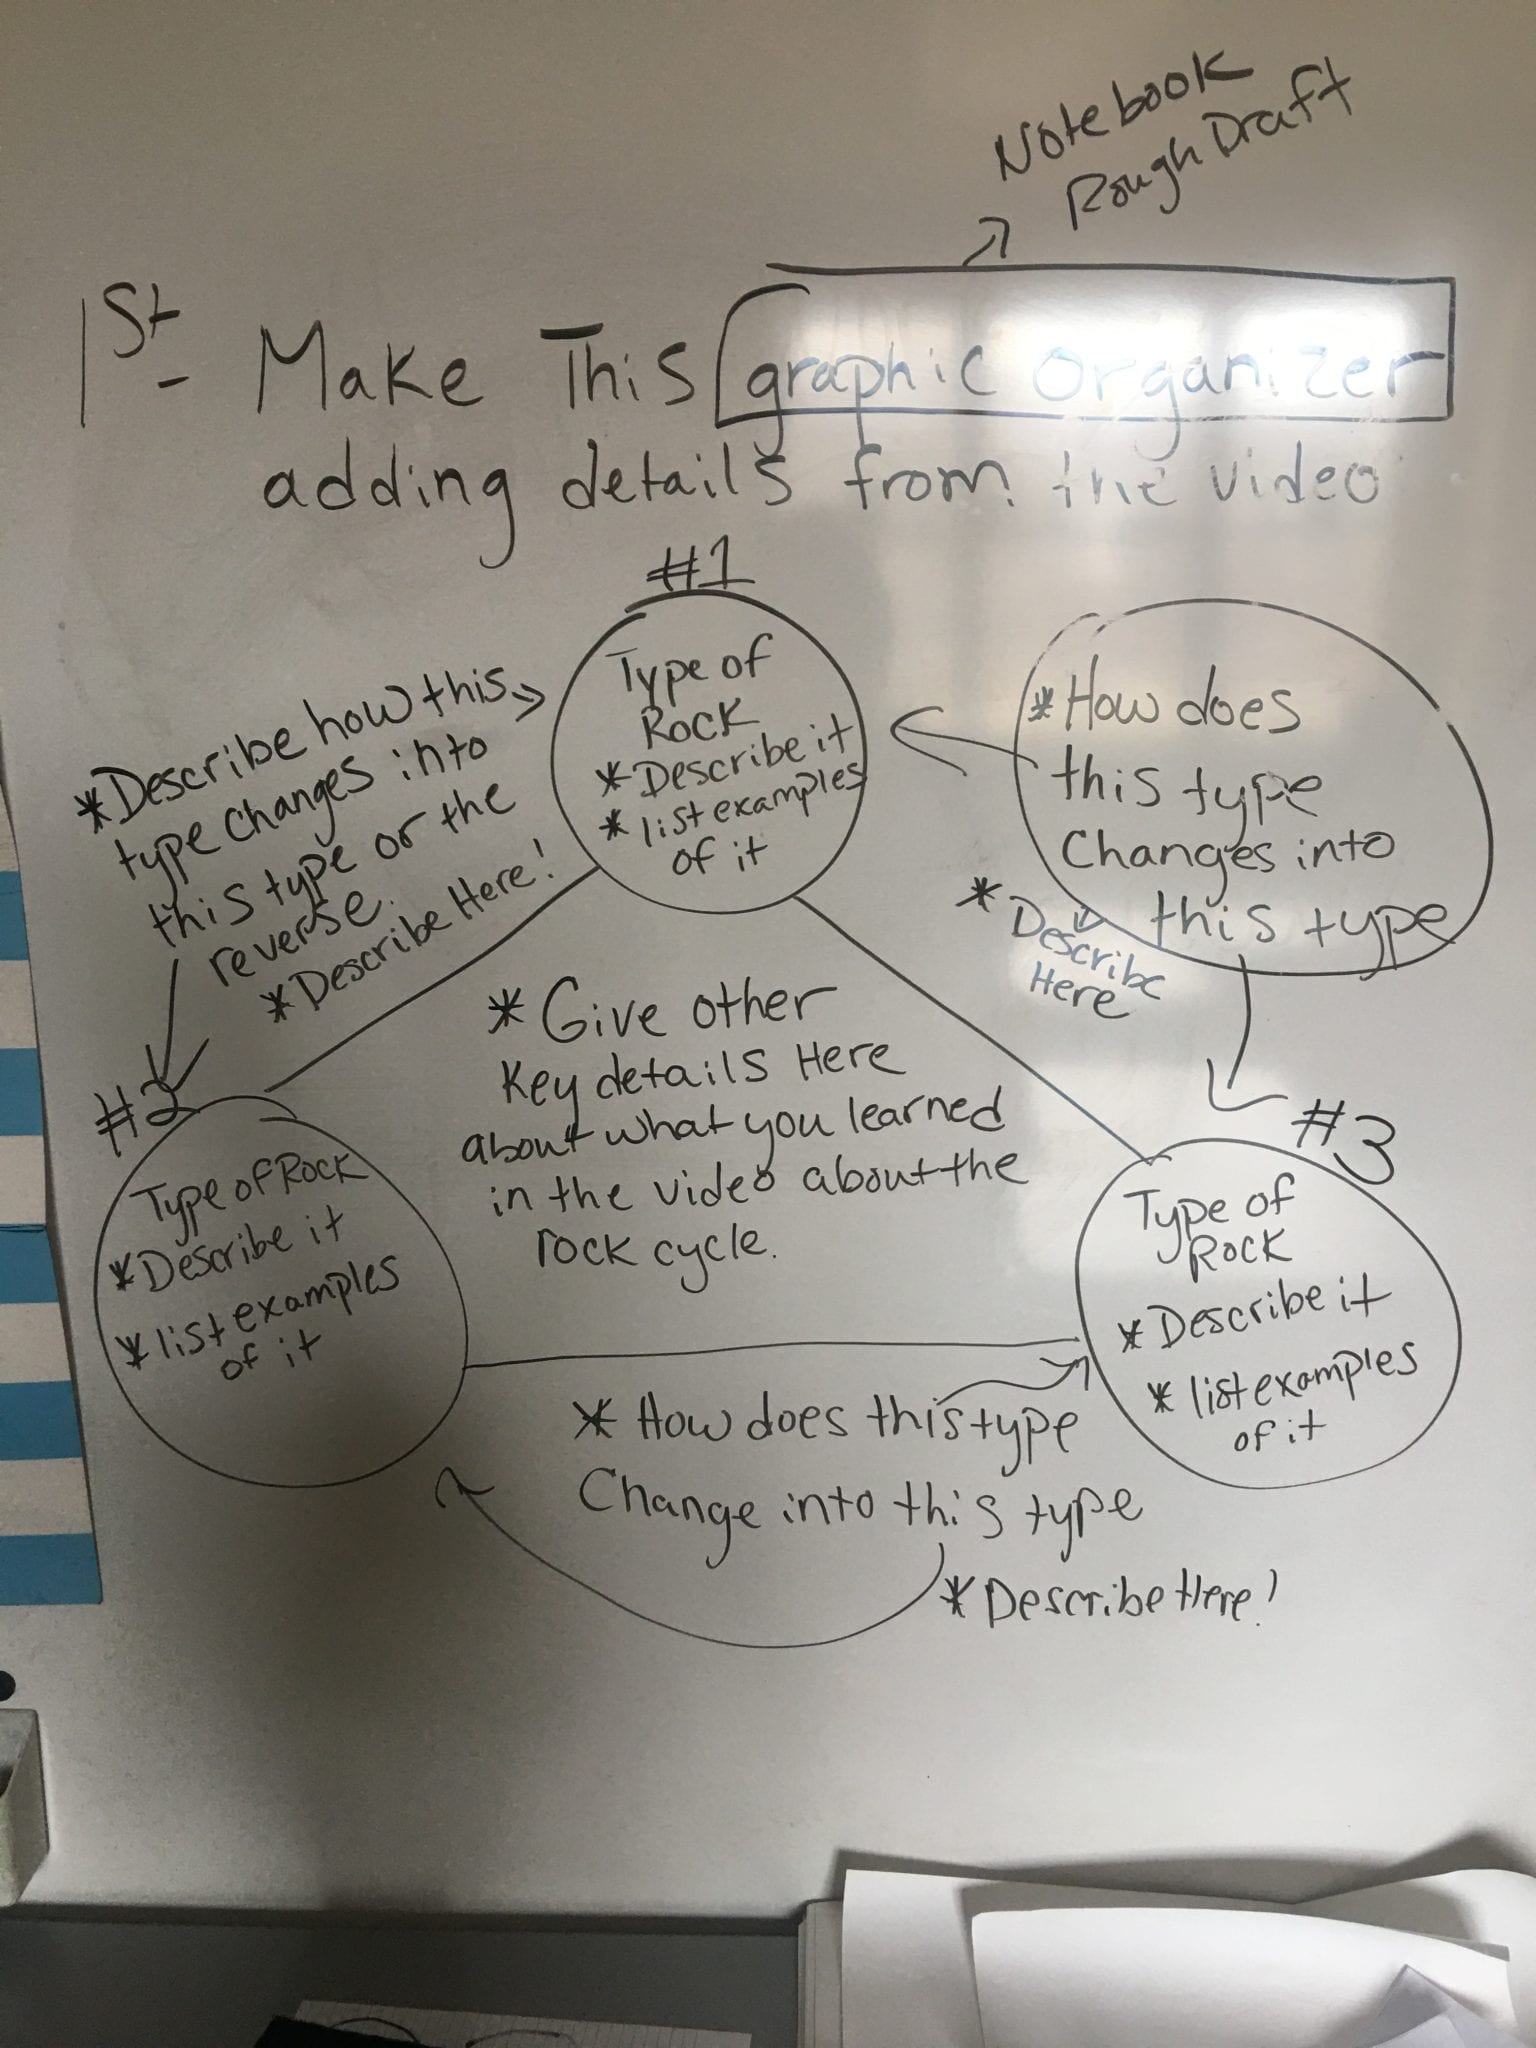 Notebook
Rough Draft
1st - Make This graphic organizer
adding details from the video
#1
Type of
Rock
* Describe it
* list examples
of it
* Describe how this
type changes into
this type or the
reverse.
* Describe Here!
* How does
this type
Changes into
this type
* Describe
Here
* Give other
Key details Here
about what you learned
in the video about the
rock cycle.
#2
Type of Rock
* Describe it
* list examples
of it
#3
Type of
Rock
* Describe it
* list examples
of it
* How does this type
Change into this type
* Describe Here!